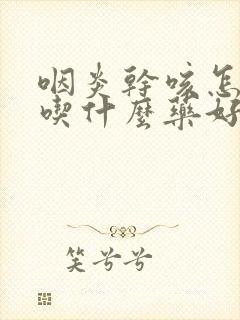 咽炎幹咳怎
喫什麼藥好
笑兮兮